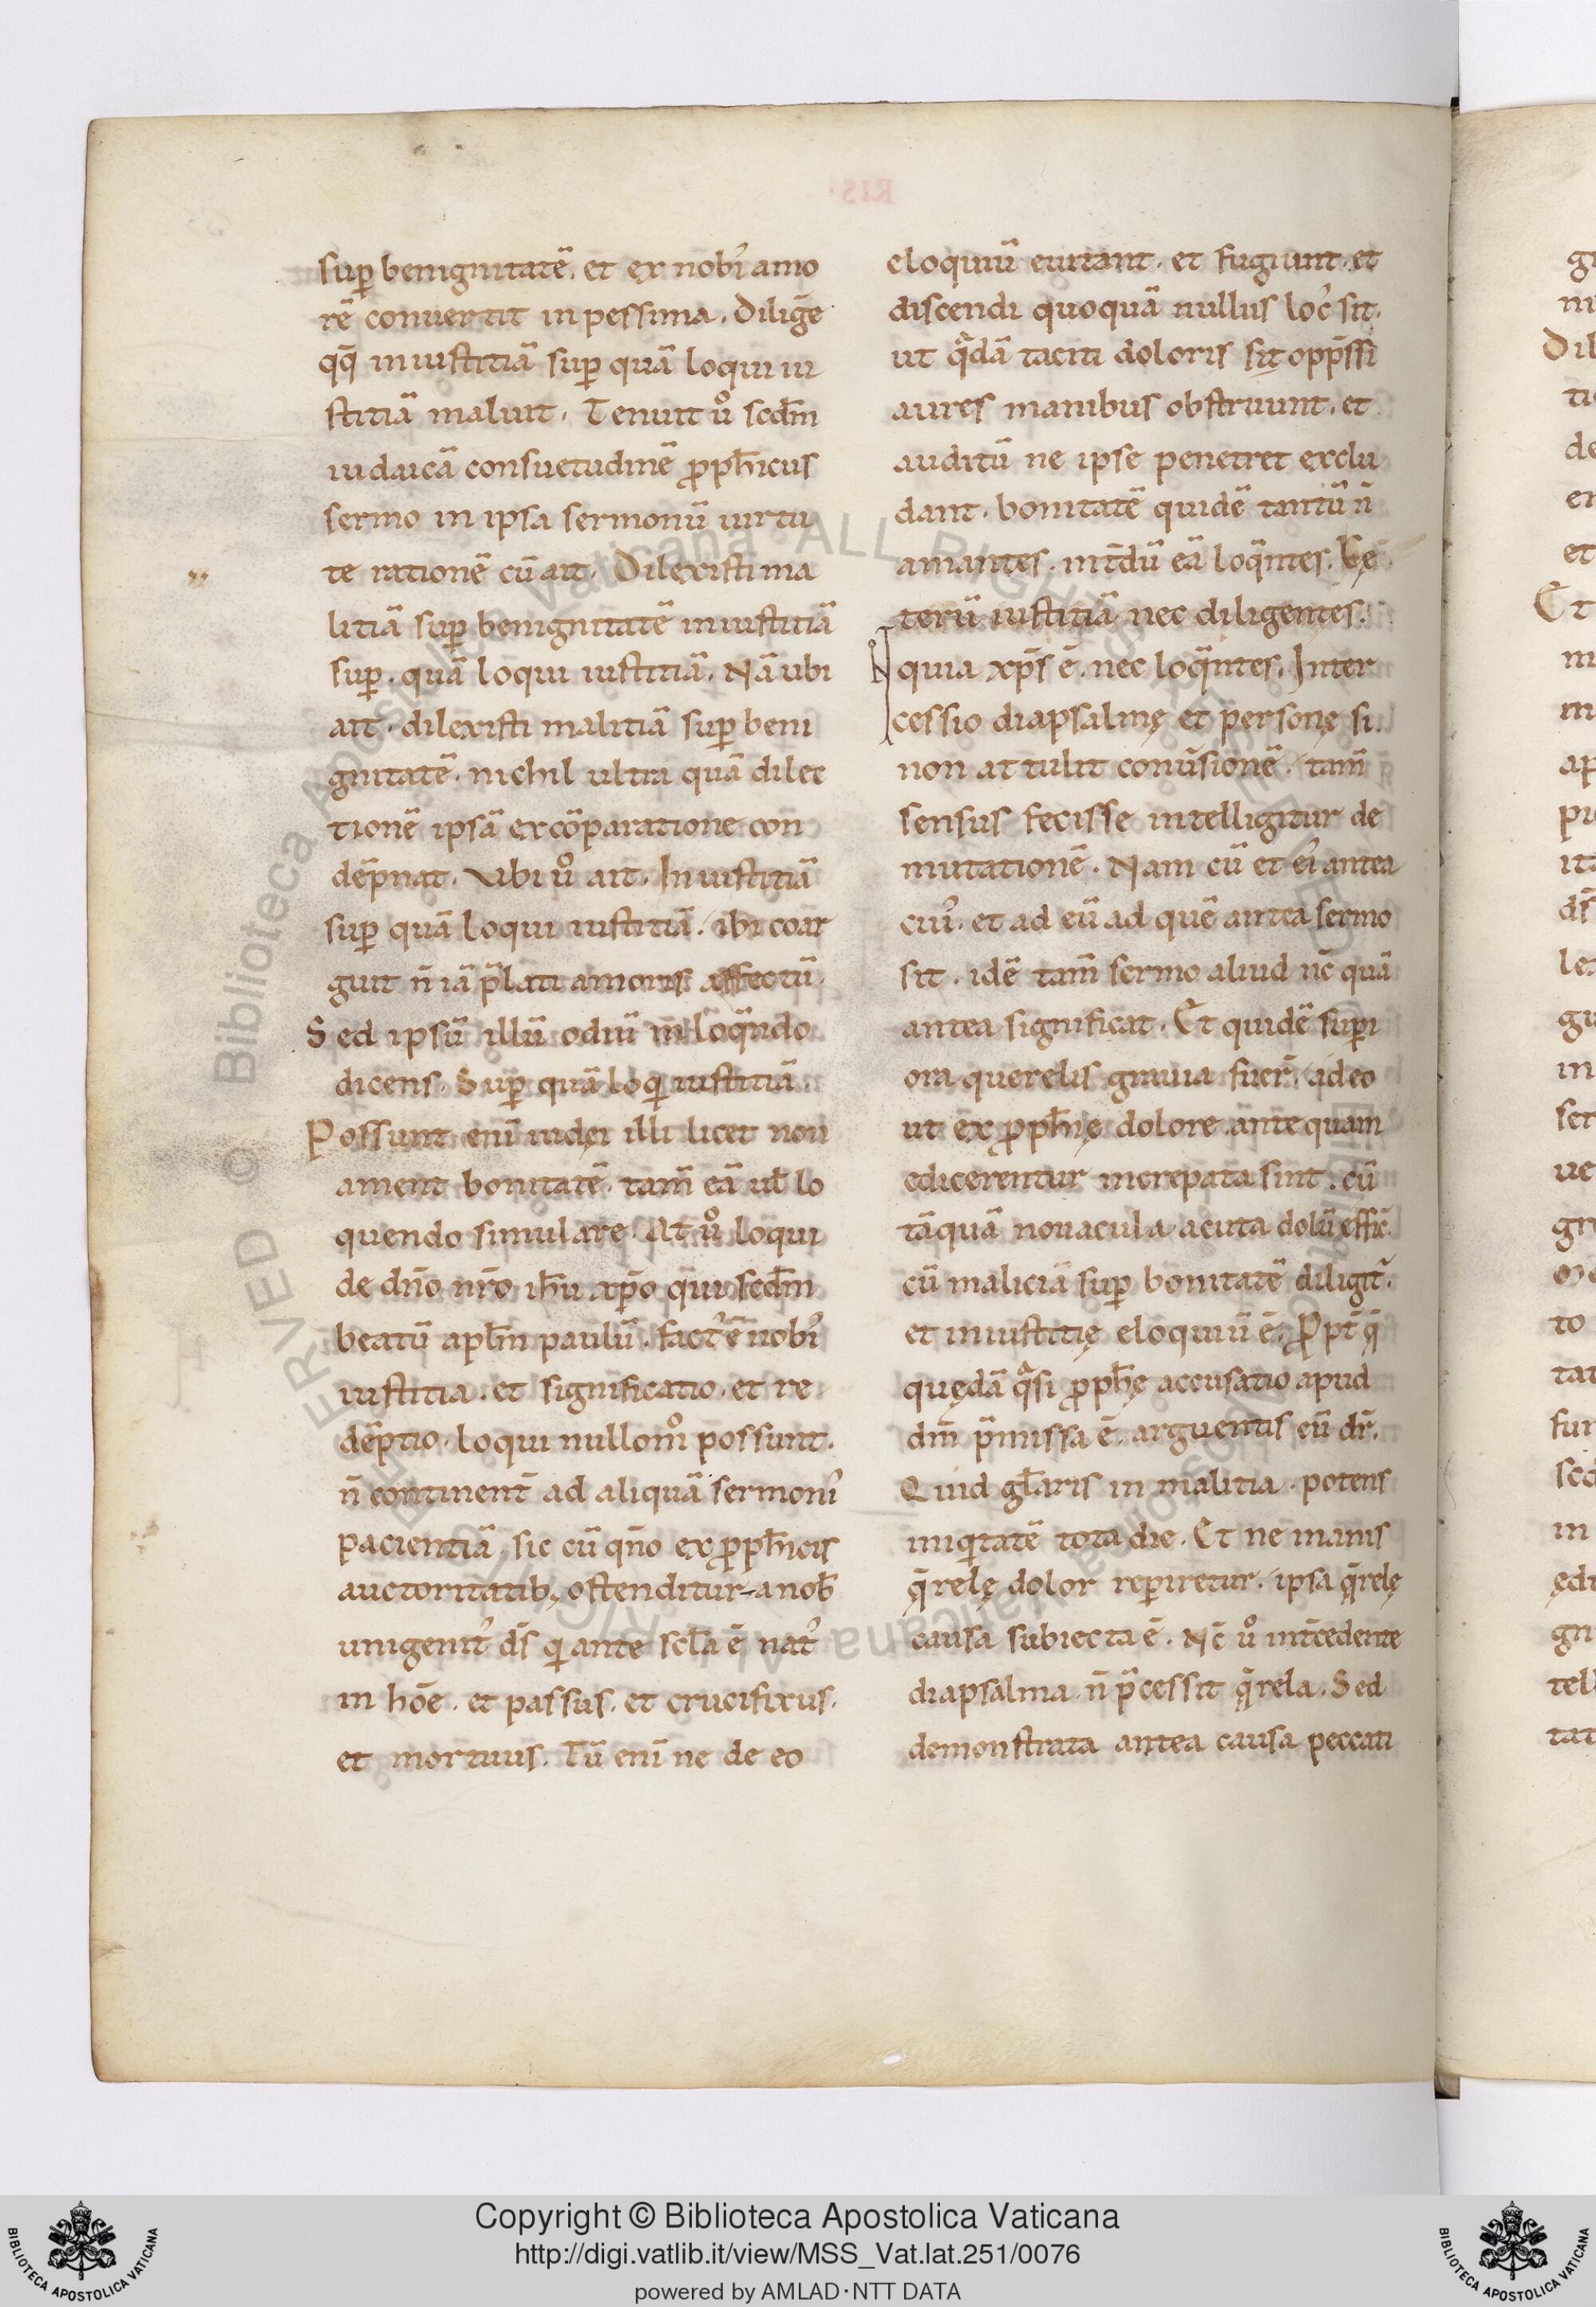 sup̱ benignitatē. et ex nobı᷒ amo
rē conuertit in pessima. Diligē
qq̄ iniustitiā sup̱ quā loqui iu
stitiā maluit. Tenuit ůo scdm̄
iudaicā consuetudinē ꝓph̄icus
sermo in ipsa sermonū uirtu
te rationē cū ait. Dilexisti ma
litiā sup̱ benignitatē iniustitiā
sup̱. quā loqui iustitiā. Nā ubi
ait. dilexisti malitiā sup̱ beni
gnitatē. nichil ultra quā dilec
tionē ipsā ex cōparatione con
dēpnat. Ubi ůo ait. Iniustitiā
sup̱ quā loqui iustitiā. ibi coar
guit n̄ iā p̄lati amoris affectū.
Sed ipsū illū odiū in loq̄ndo
dicens. Sup̱ quā loqi iustitiā.
Possunt enī iudęi illi licet non
ament bonitatē. tam̄ eā ul̄ lo
quendo simulare. At ůo loqui
de dn̄o nr̄o ih̄u xp̄o qui scdm̄
beatū apl̄m paulū. fact᷒ ē nobı᷒
iustitia. et significatio. et re
dēptio. loqui nullom̊ possunt.
n̄ continent̄ ad aliquā sermonı᷒
pacientiā. sic cū qn̄o ex ꝓph̄icis
auctoritatib; ostenditur a nob̄
unigenit᷒ ds̄ qi ante scl̄a ē nat᷒
in hōe. et passus. et crucifixus.
et mortuus. Tū enī ne de eo
eloquiū euitant. et fugiunt. et
discendi quoquā nullus loc᷒ sit.
ut qădā taciti doloris sit opp̄ssi
aures manibus obstruunt. et
auditū ne ipse penetret exclu
dant. bonitatē quidē tantū n̄
amantes. int̄dū eā loq̄ntes. Cę
terū iustitiā nec diligentes.
quia xp̄s ē. nec loq̄ntes. Inter
cessio diapsalmę et personę si
non attulit conu̅sionē. tam̄
sensus fecisse intelligitur de
mutationē. Nam cū et eı᷒ antea
cui᷒. et ad eū ad quē antea sermo
sit. idē tam̄ sermo aliud nc̄ quā
antea significat. Et quidē sup̱i
ora querelis grauia fuer̄. adeo
ut ex ꝓph̄ię dolore antequam
edicerentur increpata sint. cū
tāquā nouacula acuta dolū effic̄.
cū maliciā sup̱ bonitatē diligit̄.
et iniustitię eloquiū ē. Ꝓpt̄ q̄
quędā qăsi ꝓph̄ę accusatio apud
dm̄ p̄missa ē. arguentis eū dr̄.
Quid gl̄aris in malitia. potens
iniqitatē tota die. Et ne inanis
q̄relę dolor rep̱iretur. ipsa q̄relę
causa subiecta ē. Nc̄ ůo int̄cedente
diapsalma. n̄ p̄cessit q̄rela. Sed
demonstrata antea causa peccati
Copyright © Biblioteca Apostolica Vaticana
http://digi.vatlib.it/view/MSS_Vat.lat.251/0076
powered by AMLAD·NTT DATA